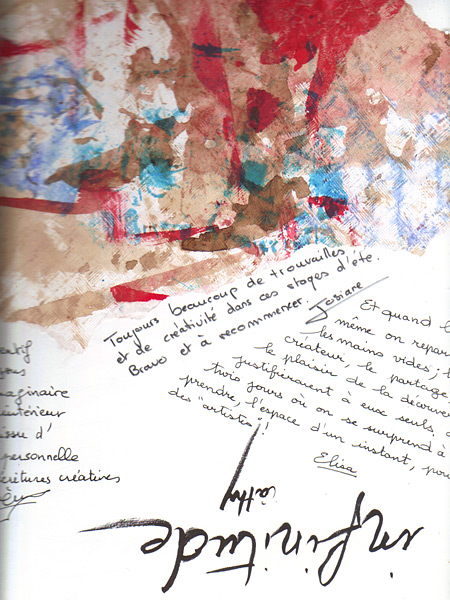 Toujours beaucoup de trouvailles
et de créativité dans ces stages d'été.
Bravo et à recommencer. Josiane
Et quand
même on repar
les mains vides ;
créateur, le partage,
le plaisir de la découver
justifieraient à eux seuls,
trois jours où on se surprend à
prendre, l'espace d'un instant, pou
des "artistes" !
Elisa
éatif
maginaire
intérieur
issu d'
personnelle
écritures créatives
Cathy
infinitude